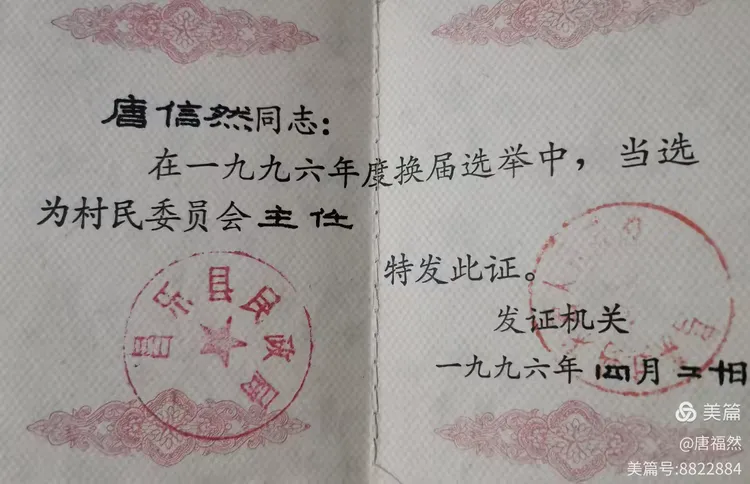 唐信然同志：
在一九九六年度换届选举中，当选
为村民委员会主任
特发此证。
昌乐县民政局
发证机关
一九九六年四月二十日
美篇
@唐福然
美篇号:8822884